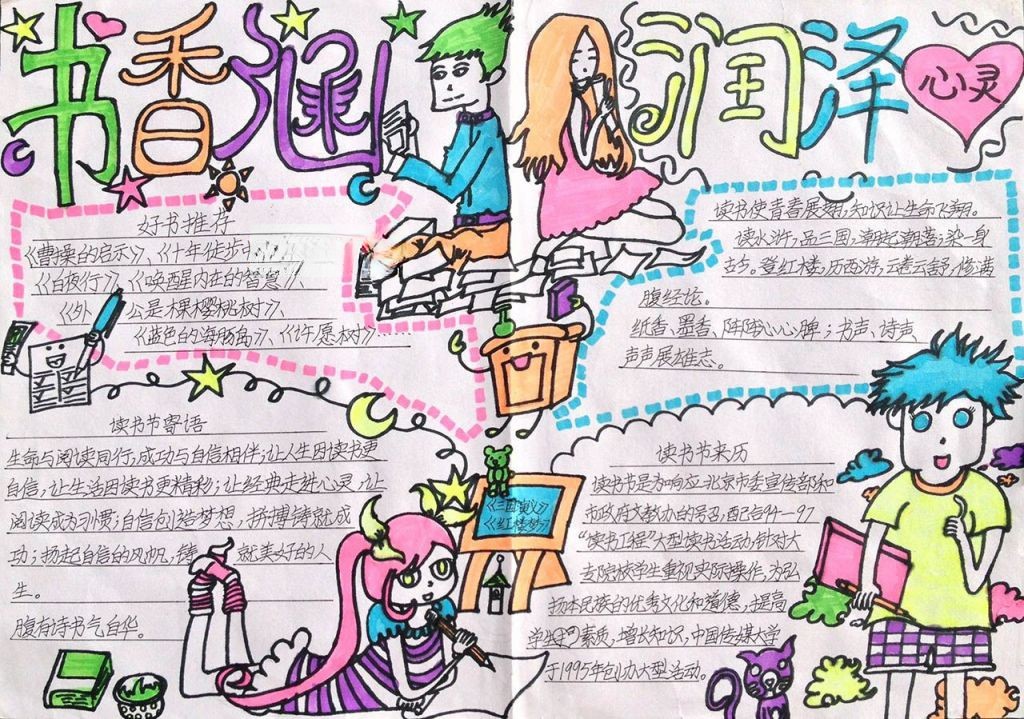 书香
润泽
心灵
好书推荐
《曹操的启示》、《十年徒步
《白夜行》、《唤醒内在的智慧》、
《外 公是棵樱桃树》、
《蓝色的海豚岛》、《许愿树》……
读书节寄语
生命与阅读同行,成功与自信相伴;让人生因读书更
自信,让生活因读书更精彩;让经典走进心灵,让
阅读成为习惯;自信创造梦想,拼搏铸就成
功;扬起自信的风帆,铸 就美好的人
生。
腹有诗书气自华。
读书使青春展翅,知识让生命飞翔。
读水浒,品三国,潮起潮落;染一身
。登红楼,历西游,云卷云舒,修满
腹经论。
纸香、墨香、阵阵沁心脾;书声、诗声、
声声展雄志。
《三国演义》
《红楼梦》
读书节来历
读书节是为响应北京市委宣传部和
市政府文教办的号召,配合94—97
“读书工程”大型读书活动,针对大
专院校学生重视实际操作,为弘
扬本民族的优秀文化和道德,提高
学生 素质,增长知识,中国传媒大学
于1995年创办大型活动。